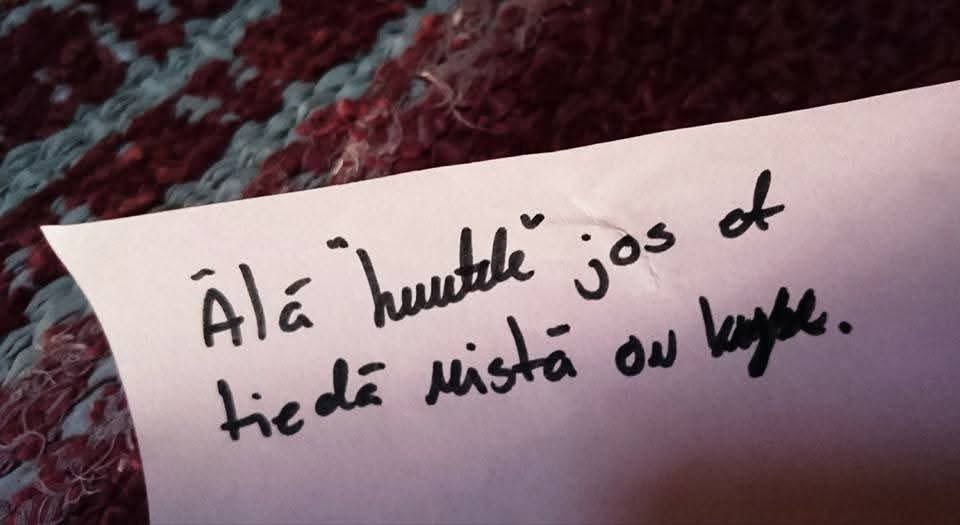 Älä "huutele" jos et
tiedä mistä on kyse.